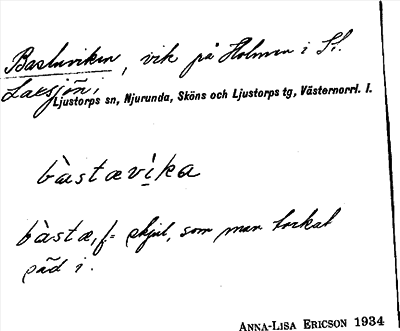 Bastuviken, vik på Holmen i St.
Laxsjön,
Ljustorps sn, Njurunda, Sköns och Ljustorps tg, Västernorrl. l.
bàstævi̱ka
bàstæ, f. = skjul, som man torkat
säd i.
ANNA-LISA ERICSON 1934